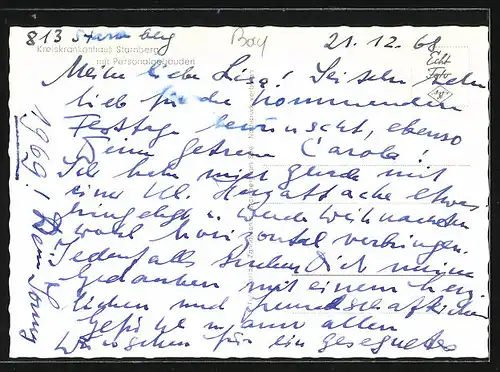 813 Starnberg Bay 21.12.68
Kreiskrankenhaus Starnberg
mit Personalgebäuden
Echt
Foto
Meine liebe Lisa! Sei sehr
lieb für die kommenden
Festtage bewünscht, ebenso
Deine getreue Carola!
Ich habe mir gerade mit
einer kl. Herzattacke etwas
eingelegt u. werde Weihnachten
wohl horizontal verbringen.
Jedenfalls suchen Dich meine
Gedanken mit einem herz-
lichen und freundschaftlichen
Gefühl u. allen
Wünschen für ein gesegnetes
1969! Dein